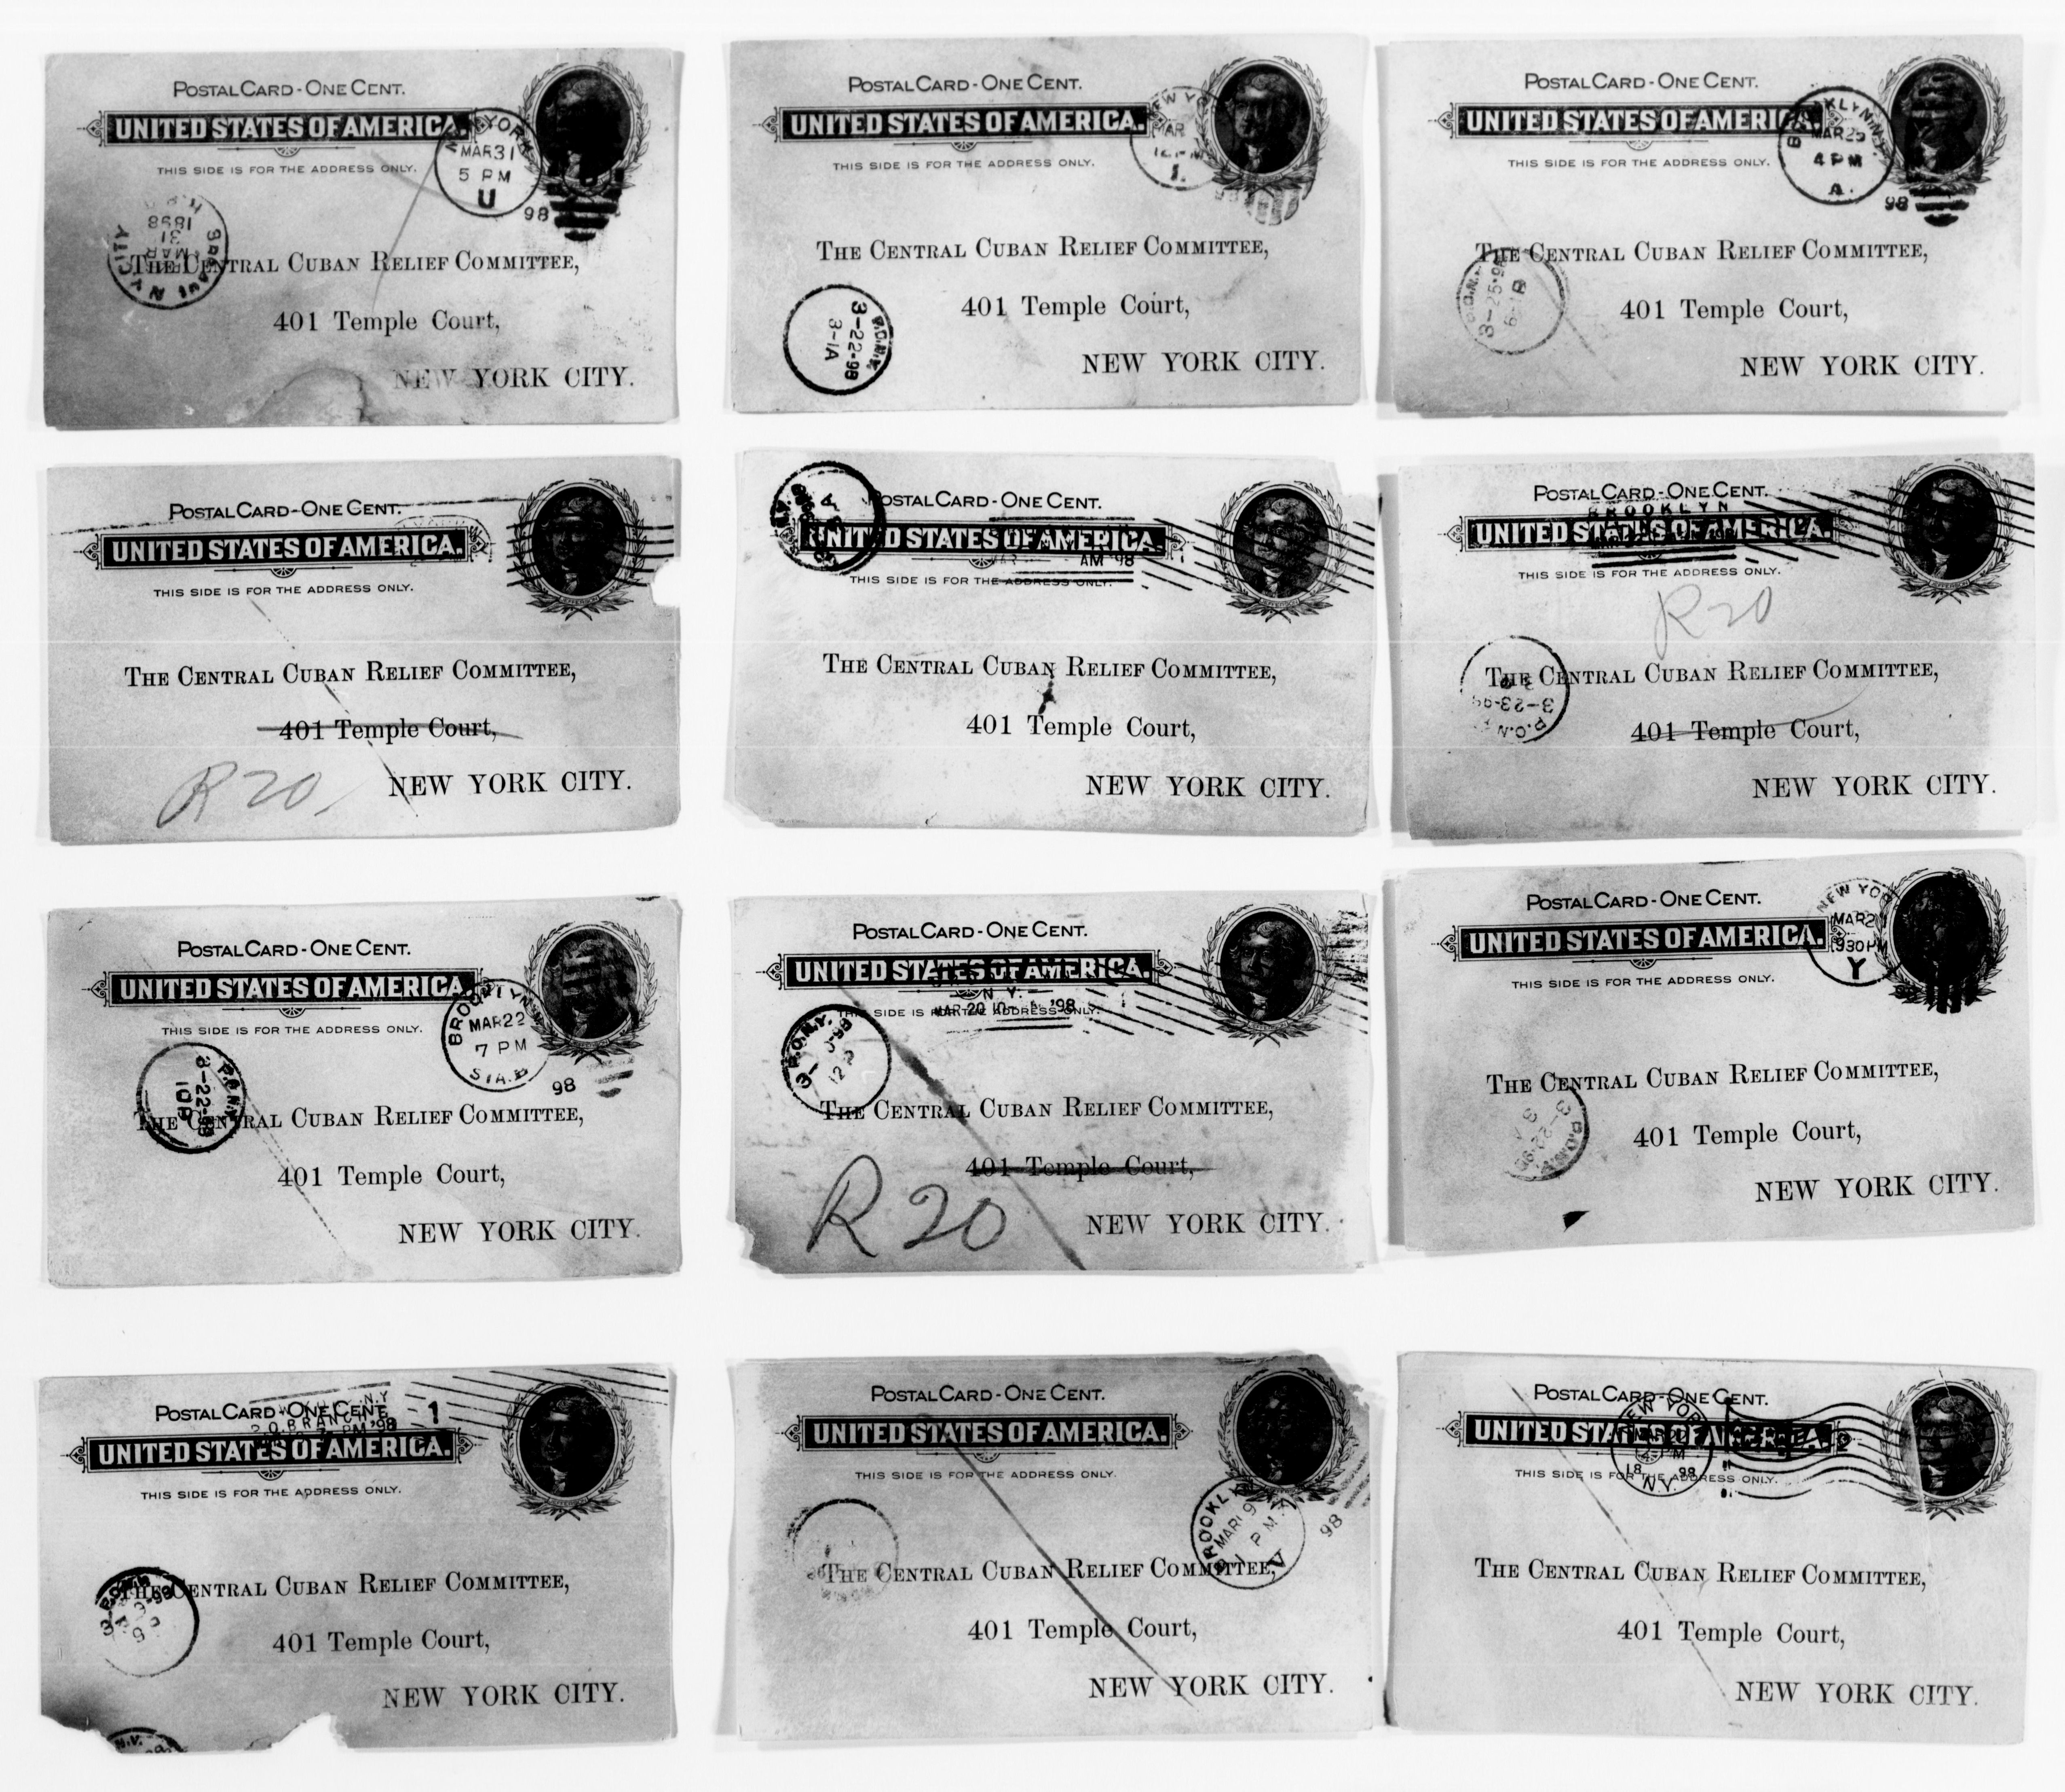 POSTAL CARD - ONE CENT.
UNITED STATES OF AMERICA.
THIS SIDE IS FOR THE ADDRESS ONLY.
YORK
MAR 31
5 PM
U
98
CITY
1898
31
MAR
THE CENTRAL CUBAN RELIEF COMMITTEE,
401 Temple Court,
NEW YORK CITY.
POSTAL CARD - ONE CENT.
UNITED STATES OF AMERICA.
THIS SIDE IS FOR THE ADDRESS ONLY.
MAR
THE CENTRAL CUBAN RELIEF COMMITTEE,
P.O.N.Y.
3-22-98
3-1A
401 Temple Court,
NEW YORK CITY.
POSTAL CARD - ONE CENT.
UNITED STATES OF AMERICA.
THIS SIDE IS FOR THE ADDRESS ONLY.
MAR 25
4 PM
A.
98
THE CENTRAL CUBAN RELIEF COMMITTEE,
401 Temple Court,
NEW YORK CITY.
POSTAL CARD - ONE CENT.
UNITED STATES OF AMERICA.
THIS SIDE IS FOR THE ADDRESS ONLY.
THE CENTRAL CUBAN RELIEF COMMITTEE,
401 Temple Court,
R 20
NEW YORK CITY.
POSTAL CARD - ONE CENT.
UNITED STATES OF AMERICA.
AM '98
THIS SIDE IS FOR THE ADDRESS ONLY.
THE CENTRAL CUBAN RELIEF COMMITTEE,
401 Temple Court,
NEW YORK CITY.
POSTAL CARD - ONE CENT.
BROOKLYN
UNITED STATES OF AMERICA.
THIS SIDE IS FOR THE ADDRESS ONLY.
R 20
THE CENTRAL CUBAN RELIEF COMMITTEE,
401 Temple Court,
NEW YORK CITY.
POSTAL CARD - ONE CENT.
UNITED STATES OF AMERICA.
THIS SIDE IS FOR THE ADDRESS ONLY.
BROOKLYN
MAR 22
7 PM
STA. B
98
P.O.N.Y.
3-22-98
10P
THE CENTRAL CUBAN RELIEF COMMITTEE,
401 Temple Court,
NEW YORK CITY.
POSTAL CARD - ONE CENT.
UNITED STATES OF AMERICA.
N. Y.
MAR 20 '98
THIS SIDE IS FOR THE ADDRESS ONLY.
P.O.N.Y.
THE CENTRAL CUBAN RELIEF COMMITTEE,
401 Temple Court,
R 20
NEW YORK CITY.
POSTAL CARD - ONE CENT.
UNITED STATES OF AMERICA.
THIS SIDE IS FOR THE ADDRESS ONLY.
NEW YORK
930 PM
Y
THE CENTRAL CUBAN RELIEF COMMITTEE,
401 Temple Court,
NEW YORK CITY.
N.Y.
POSTAL CARD - ONE CENT.
P.O. BRANCH
PM '98
1
UNITED STATES OF AMERICA.
THIS SIDE IS FOR THE ADDRESS ONLY.
THE CENTRAL CUBAN RELIEF COMMITTEE,
401 Temple Court,
NEW YORK CITY.
N.Y.
POSTAL CARD - ONE CENT.
UNITED STATES OF AMERICA.
THIS SIDE IS FOR THE ADDRESS ONLY.
MAR 19
1 PM
V
98
THE CENTRAL CUBAN RELIEF COMMITTEE,
401 Temple Court,
NEW YORK CITY.
POSTAL CARD - ONE CENT.
NEW YORK
UNITED STATES OF AMERICA.
THIS SIDE IS FOR THE ADDRESS ONLY.
18 98
N.Y.
THE CENTRAL CUBAN RELIEF COMMITTEE,
401 Temple Court,
NEW YORK CITY.